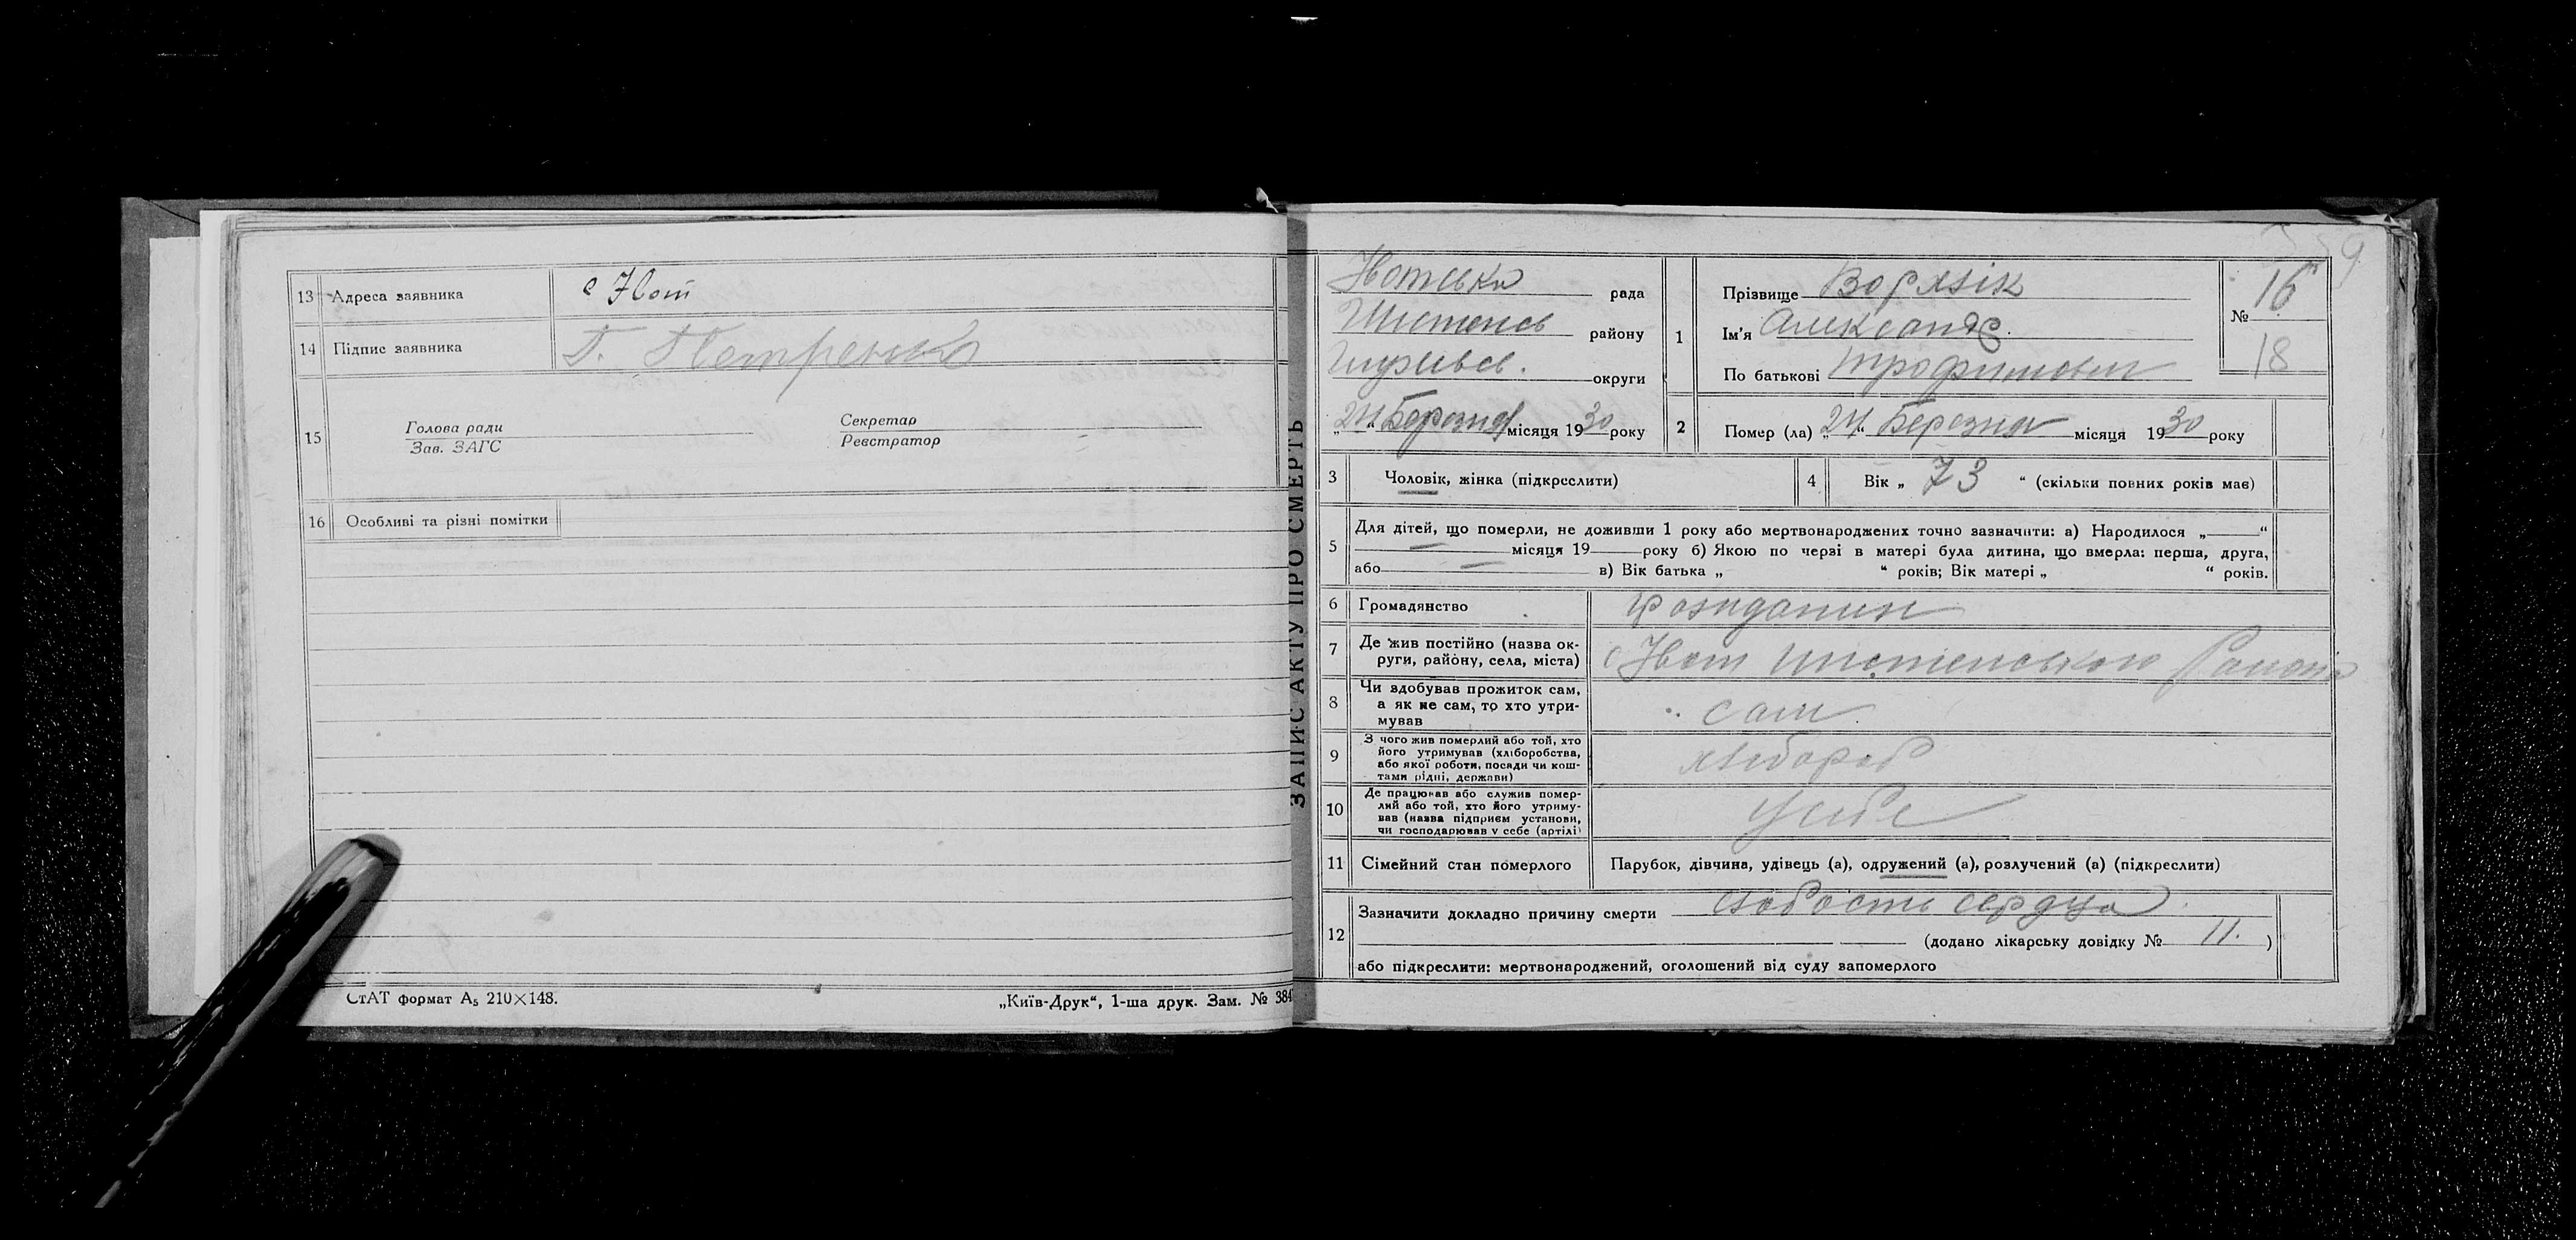 13 Адреса заявника с Івот
14 Підпис заявника Г. Петренко
15 Голова ради Секретар
Зав. ЗАГС Реєстратор
16 Особливі та різні помітки
СтАТ формат А₅ 210×148.
„Київ-Друк“, 1-ша друк. Зам. № 384
ЗАПИС АКТУ ПРО СМЕРТЬ
Івотська рада
району
округи
„24“ Березня місяця 1930 року
1 Прізвище
Ім'я Александ
По батькові Трофимович
№ 16
18
2 Помер (ла) „24“ Березня місяця 1930 року
3 Чоловік, жінка (підкреслити)
4 Вік „ 73 “ (скільки повних років має)
5 Для дітей, що померли, не доживши 1 року або мертвонароджених точно зазначити: а) Народилося „ “
місяця 19 року б) Якою по черзі в матері була дитина, що вмерла: перша, друга,
або в) Вік батька „ “ років; Вік матері „ “ років.
6 Громадянство
7 Де жив постійно (назва ок-
руги, району, села, міста) с Івот
8 Чи здобував прожиток сам,
а як не сам, то хто утри-
мував сам
9 З чого жив померлий або той, хто
його утримував (хліборобства,
або якої роботи, посади чи кош-
тами рідні, держави) хлібороб
10 Де працював або служив помер-
лий або той, хто його утриму-
вав (назва підприєм установи,
чи господарював у себе (артілі) У себе
11 Сімейний стан померлого Парубок, дівчина, удівець (а), одружений (а), розлучений (а) (підкреслити)
12 Зазначити докладно причину смерти слабость сердца
(додано лікарську довідку № 11. )
або підкреслити: мертвонароджений, оголошений від суду запомерлого